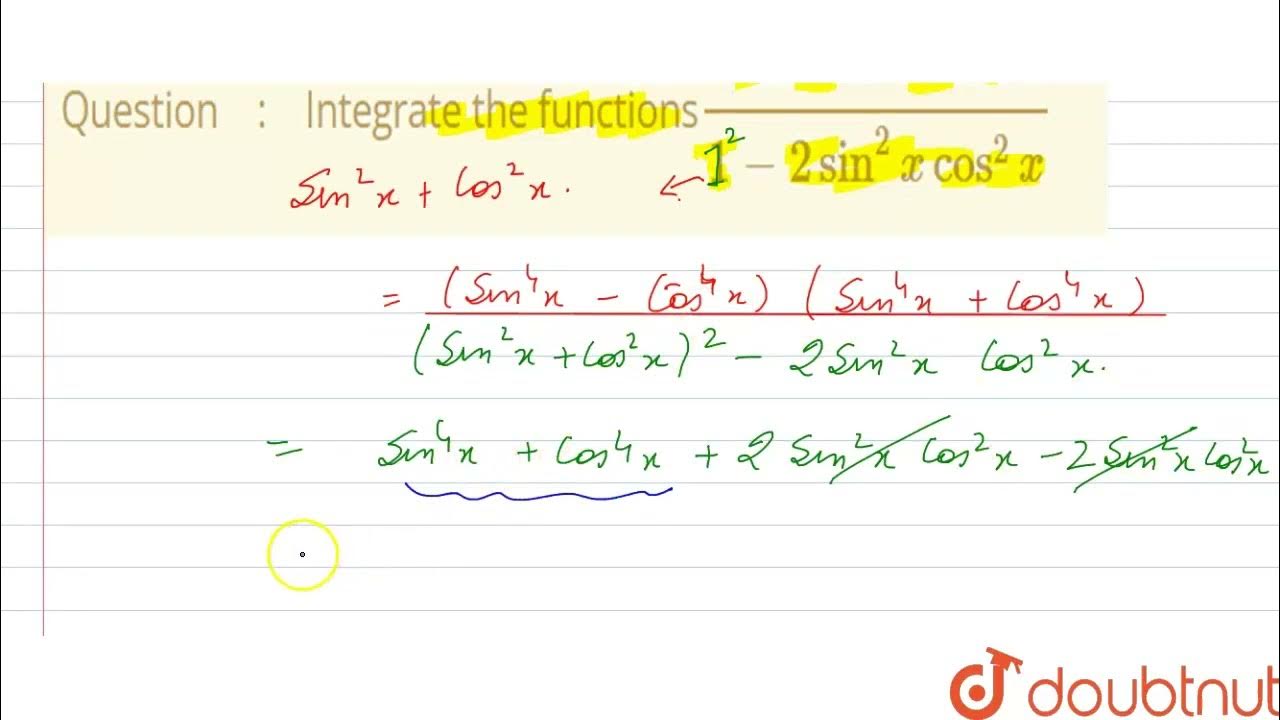 Question : Integrate the functions
1² − 2 sin² x cos² x
Sin²x + Cos²x. ←
= (Sin⁴x − Cos⁴x) (Sin⁴x + Cos⁴x)
(Sin²x + Cos²x)² − 2 Sin²x Cos²x.
= Sin⁴x + Cos⁴x + 2 Sin²x Cos²x − 2 Sin²x Cos²x
doubtnut